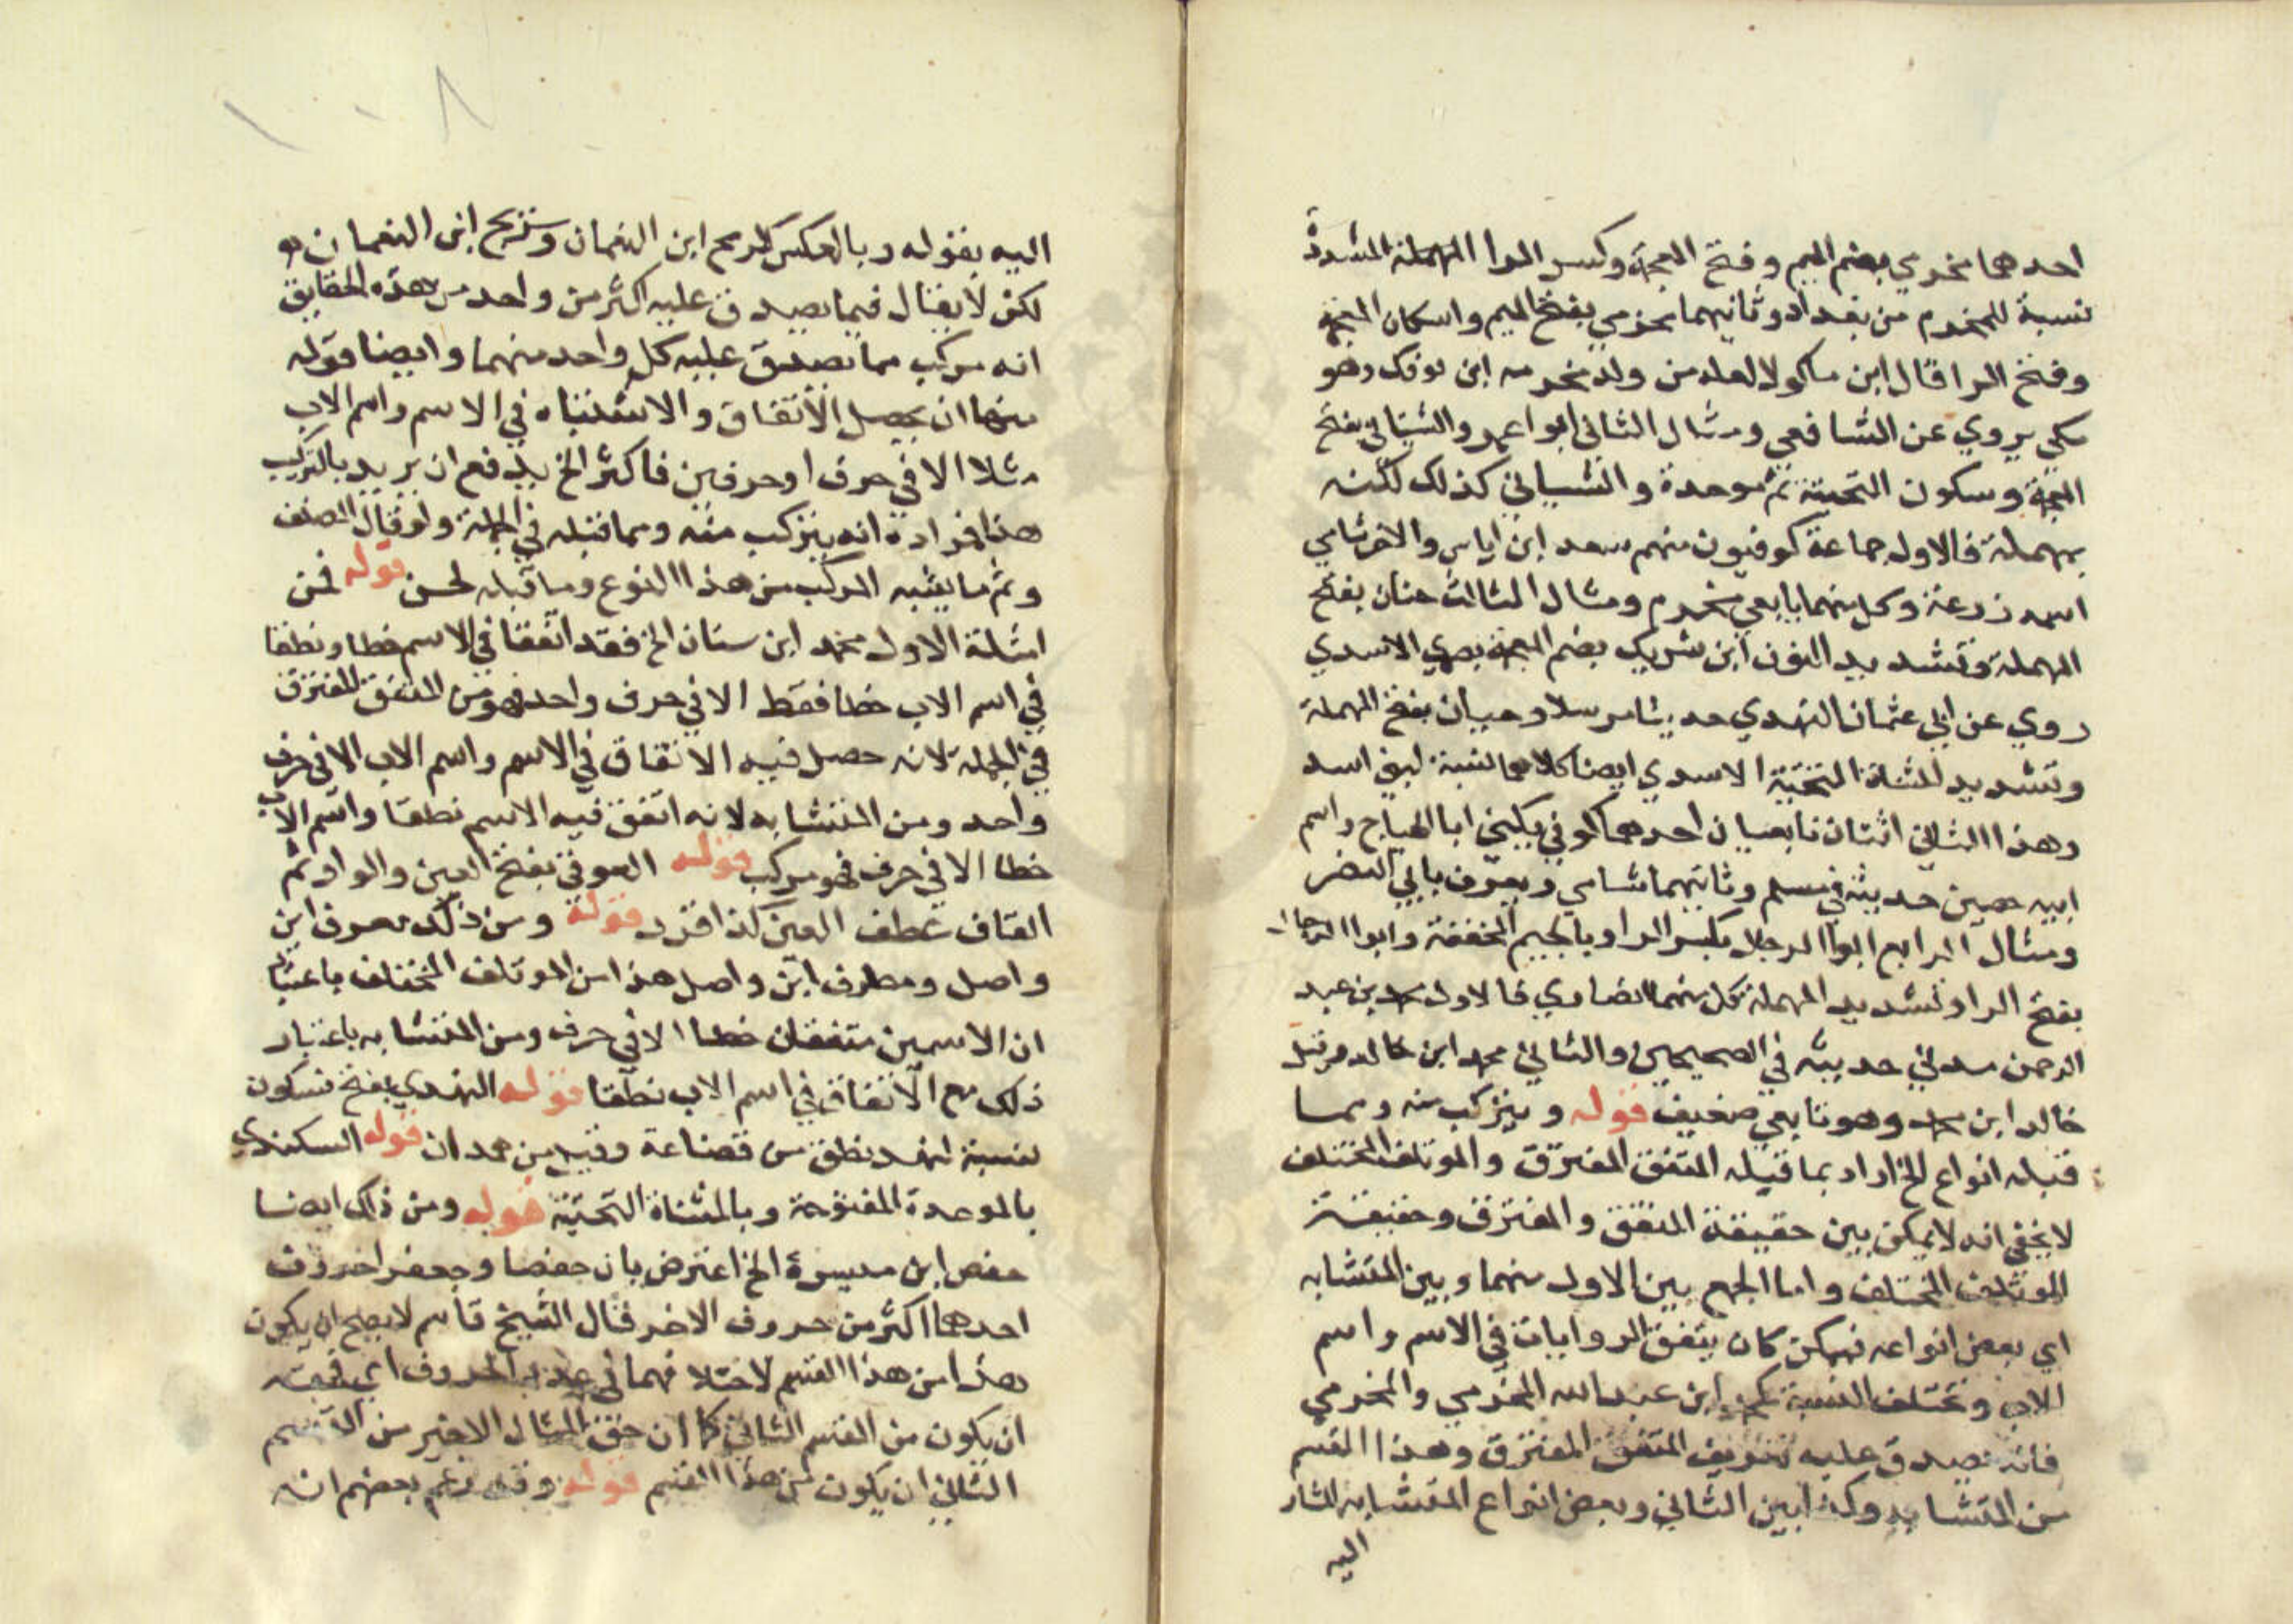 احدهما مخرمي بضم الميم وفتح المعجمة وكسر الرا المهملة المشددة
نسبة للمخرم من بغداد وثانيهما مخرمي بفتح الميم واسكان المعجمة
وفتح الرا قال ابن ماكولا لعله من ولد مخرمه ابن نوفل وهو
مكي يروي عن الشافعي ومثال الثاني ابوا عمرو الشيباني بفتح
المعجمة وسكون التحتية ثم موحدة والسيباني كذلك لكنه
بمهملة فالاول جماعة كوفيون منهم سعد ابن اياس والاخر شامي
اسمه زرعة وكل منهما تابعي مخضرم ومثال الثالث حنان بفتح
المهملة وتشديد النون ابن شريك بضم المعجمة بصري الاسدي
روي عن ابي عثمان النهدي حديثا مرسلا وحيان بفتح المهملة
وتشديد المثناة التحتية الاسدي ايضا كلاهما نسبة لبني اسد
وهذا الثاني اثنان تابعيان احدهما كوفي يكني ابا الهياج واسم
ابيه حصين حديثه في مسلم وثانيهما شامي ويعرف بابي النضر
ومثال الرابع ابوا الرجال بكسر الرا وبالجيم المخففة وابوا الرحال
بفتح الرا وتشديد المهملة كل منهما انصاري فالاول محمد بن عبد
الرحمن مدني حديثه في الصحيحين والثاني محمد ابن خالد وقيل
خالد ابن محمد وهو تابعي ضعيف قوله ويتركب منه ومما
قبله انواع الخ اراد بما قبله المتفق المفترق والموتلف المختلف
لا يخفي انه لا يمكن بين حقيقة المتفق والمفترق وحقيقة
الموتلف المختلف واما الجمع بين الاول منهما وبين المتشابه
اي بعض انواعه فيمكن كان يتفق الروايات في الاسم واسم
الاب وتختلف النسبة كمحمد ابن عبد الله المخرمي والمخرمي
فانه يصدق عليه تعريف المتفق المفترق وهذا القسم
من المتشابه وكذا بين الثاني وبعض انواع المتشابه المشار
اليه
اليه بقوله وبالعكس كسريج ابن النعمان وشريح ابن النعمان
لكن لا يقال فيما يصدق عليه اكثر من واحد من هذه الحقايق
انه مركب مما تصدق عليه كل واحد منهما وايضا قوله
منها ان يحصل الاتفاق والاشتباه في الاسم واسم الاب
مثلا الا في حرف او حرفين فاكثر الخ يدفع ان يريد بالتركيب
هذا فمراده انه يتركب منه ومما قبله في الجملة ولو قال المصنف
وثم ما يشبه المركب من هذا النوع وما قبله لحسن قوله فمن
امثلة الاول محمد ابن سنان الخ فقد اتفقا في الاسم خطا ونطقا
في اسم الاب خطا فقط الا في حرف واحد فهو من المتفق المفترق
في الجملة لانه حصل فيه الاتفاق في الاسم واسم الاب الا في حرف
واحد ومن المتشابه لانه اتفق فيه الاسم نطقا واسم الاب
خطا الا في حرف فهو مركب قوله العوقي بفتح العين والواو ثم
القاف عطف العين كذا قرر قوله ومن ذلك معرف ابن
واصل ومطرف ابن واصل هذا من الموتلف المختلف باعتبار
ان الاسمين متفقان خطا الا في حرف ومن المتشابه باعتبار
ذلك مع الاتفاق في اسم الاب نطقا قوله النهدي بفتح فسكون
نسبة لنهد من قضاعة وقيل من همدان قوله السكندي
بالموحدة المفتوحة وبالمثناة التحتية قوله ومن ذلك ايضا
حفص ابن ميسرة الخ اعترض بان حفصا وجعفر احروف
احدهما اكثر من حروف الاخر قال الشيخ قاسم لا يصح ان يكون
هذا من هذا القسم لاختلافهما في عدد الحروف اي فحقه
ان يكون من القسم الثاني كما ان حق المثال الاخير من القسم
الثاني ان يكون من هذا القسم قوله وقد زعم بعضهم انه